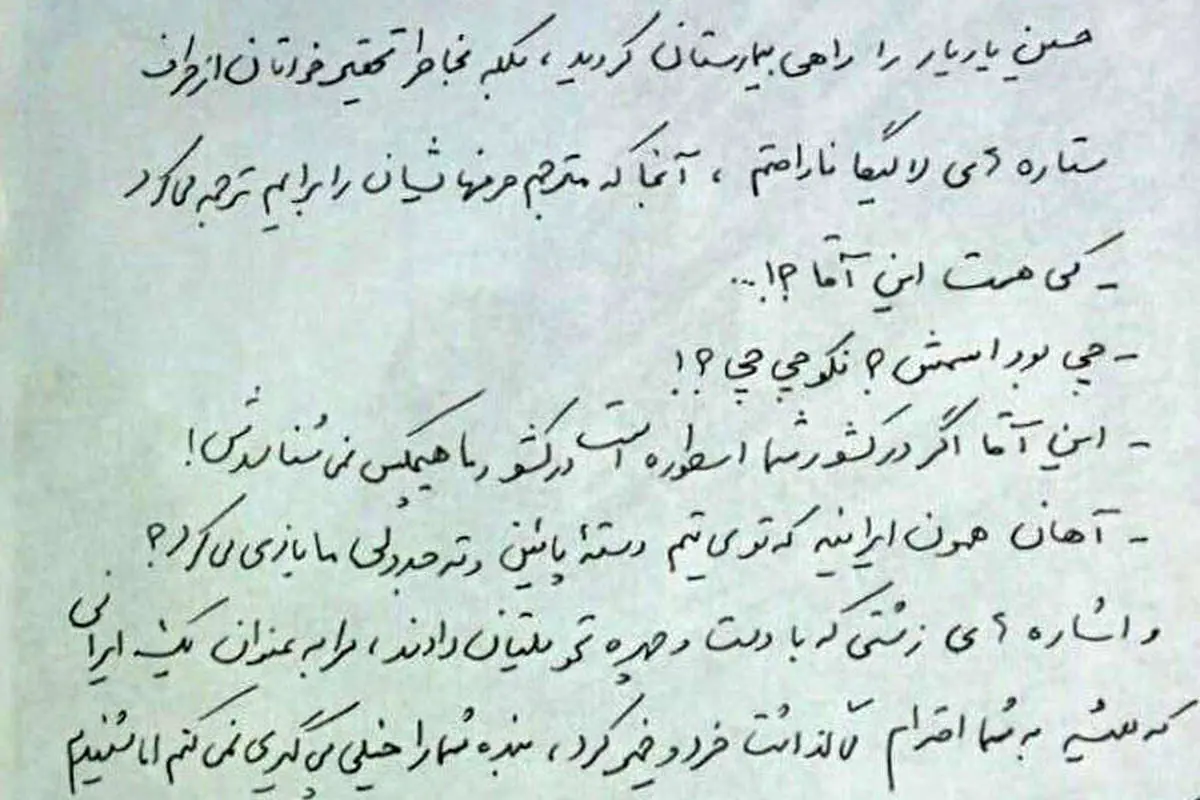 حسین یاریار را راهی بیمارستان کردید، بلکه بخاطر تحقیر خودتان از طرف
ستاره های لالیگا ناراحتم، آنجا که مترجم حرفهاشیان را برایم ترجمه می کرد
- کی هست این آقا؟!...
- چی بود اسمش؟ نکو چی چی؟!
- این آقا اگر در کشور شما اسطوره است در کشور ما هیچکس نمی شناسدش!
- آهان همون ایرانیه که توی تیم دستۀ پائین و ته جدولی ما بازی می کرد؟
و اشاره های زشتی که با دست و چهره تحویلتان دادند، مرا به عنوان یک ایرانی
که همیشه به شما احترام گذاشت خرد و خمیر کرد، بنده شما را خیلی پی گیری نمی کنم اما شنیدم